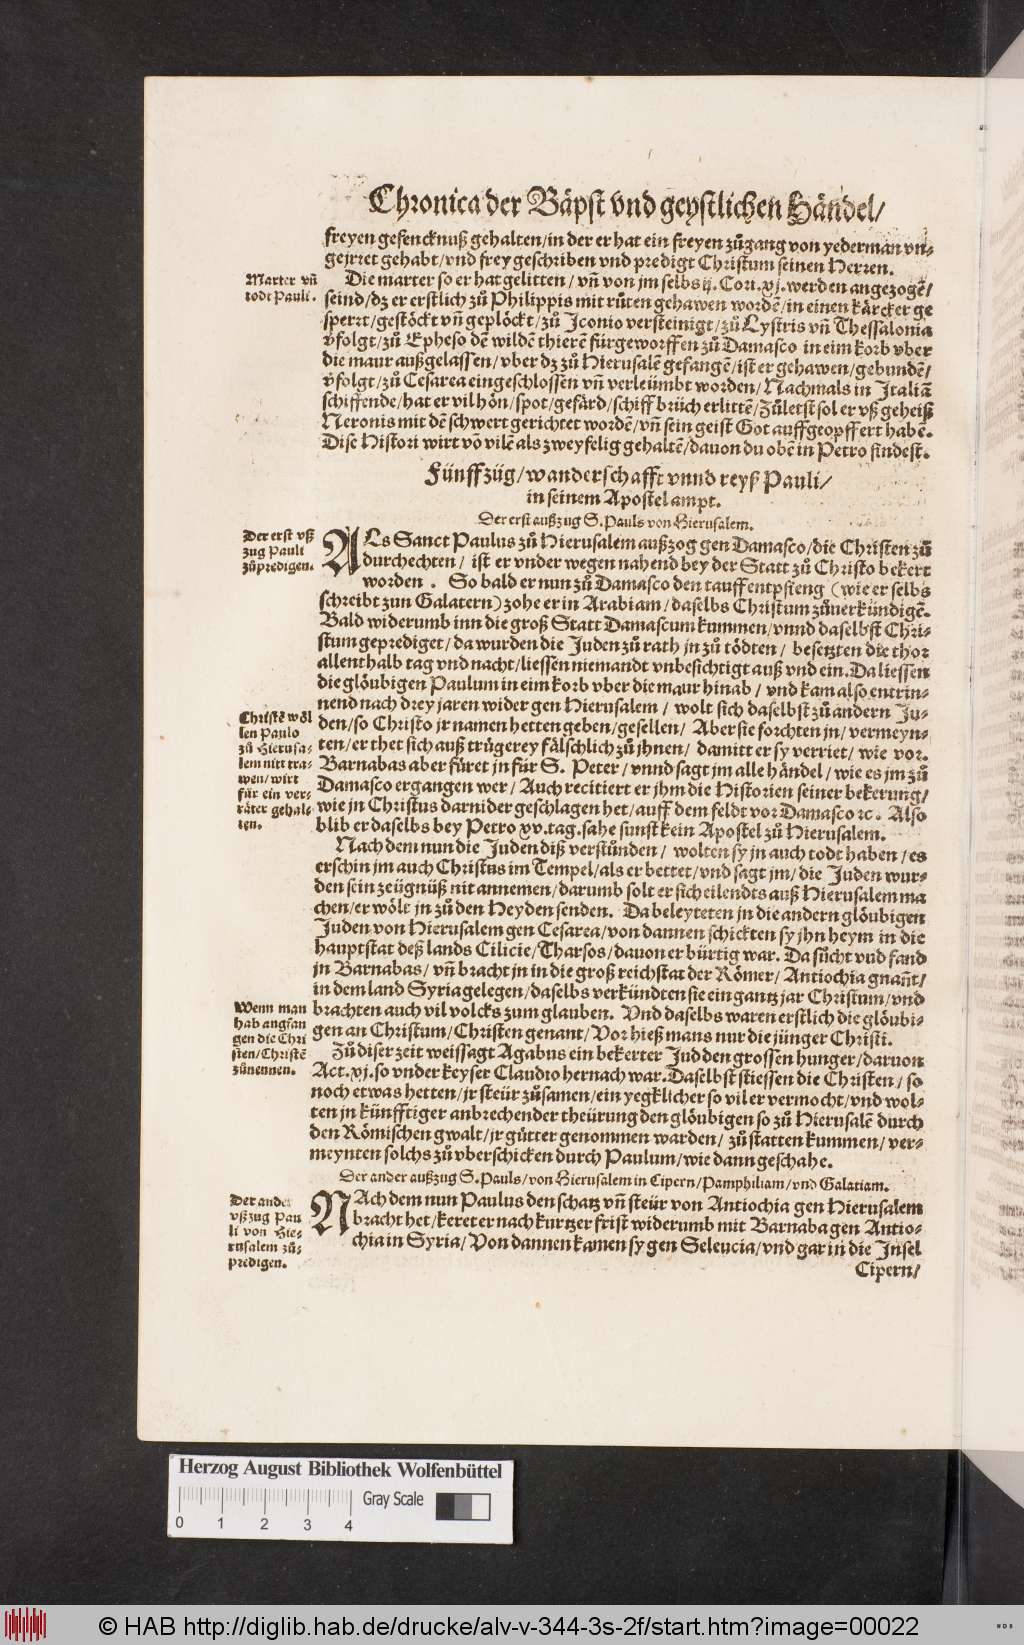 Chronica der Bäpst vnd geystlichen Händel/
freyen gefencknuß gehalten/in der er hat ein freyen zůgang von yederman vn-
gejrret gehabt/vnd frey geschriben vnd predigt Christum seinen Herren.
Marter vñ
todt Pauli.
Die marter so er hat gelitten/ vñ von jm selbs ij. Cori. xj. werden angezogẽ/
seind/dz er erstlich zů Philippis mit růten gehawen wordẽ/in einen kärcker ge
sperrt/gestöckt vñ geplöckt/zů Iconio versteinigt/zů Lystris vñ Thessalonia
v̈folgt/zů Epheso dẽ wildẽ thierẽ fürgeworffen zů Damasco in eim korb vber
die maur außgelassen/vber dz zů Hierusalẽ gefangẽ/ist er gehawen/gebundẽ/
v̈folgt/zů Cesarea eingeschlossen vñ verleümbt worden/Nachmals in Italiã
schiffende/hat er vil hön/spot/gefärd/schiffbrüch erlittẽ/Zůletst sol er vß geheiß
Neronis mit dẽ schwert gerichtet wordẽ/vñ sein geist Got auffgeopffert habẽ.
Disẽ Histori wirt võ vilẽ als zweyfelig gehaltẽ/dauon du obẽ in Petro findest.
Fünff züg/wanderschafft vnnd reyß Pauli/
in seinem Apostel ampt.
Der erst außzug S. Pauls von Hierusalem.
Der erst vß
zug Pauli
zůpredigen.
ALs Sanct Paulus zů Hierusalem außzog gen Damasco/die Christen zů
durchechten/ ist er vnder wegen nahend bey der Statt zů Christo bekert
worden. So bald er nun zů Damasco den tauff entpfieng (wie er selbs
schreibt zun Galatern) zohe er in Arabiam/daselbs Christum zůuerkündigẽ.
Bald widerumb inn die groß Statt Damascum kummen/vnnd daselbst Chri-
stum geprediget/da wurden die Juden zů rath jn zů tödten/ besetzten die thor
allenthalb tag vnd nacht/liessen niemandt vnbesichtigt auß vnd ein. Da liessen
die glöubigen Paulum in eim korb vber die maur hinab/ vnd kam also entrin-
nend nach drey jaren wider gen Hierusalem/ wolt sich daselbst zů andern Ju-
den/so Christo jr namen hetten geben/gesellen/ Aber sie forchten jn/ vermeyn-
ten/er thet sich auß trůgerey fälschlich zů jhnen/ damitt er sy verriet/ wie vor.
Barnabas aber füret jn für S. Peter/vnnd sagt jm alle händel/wie es jm zů
Damasco ergangen wer/Auch recitiert er jhm die Historien seiner bekerung/
wie jn Christus darnider geschlagen het/auff dem feldt vor Damasco ꝛc. Also
blib er daselbs bey Petro xv. tag. sahe sunst kein Apostel zů Hierusalem.
Christẽ wöl
len Paulo
zů Hierusa-
lem nitt tra-
wen/wirt
für ein ver-
räter gehal-
ten.
Nach dem nun die Juden diß verstůnden/ wolten sy jn auch todt haben/es
erschin jm auch Christus im Tempel/als er bettet/vnd sagt jm/die Juden wur-
den sein zeügnüß nit annemen/darumb solt er sich eilendts auß Hierusalem ma
chen/er wölt jn zů den Heyden senden. Da beleyteten jn die andern glöubigen
Juden von Hierusalem gen Cesarea/von dannen schickten sy jhn heym in die
hauptstat deß lands Cilicie/Tharsos/dauon er bürtig war. Da sůcht vnd fand
jn Barnabas/vñ bracht jn in die groß reichstat der Römer/Antiochia gnañt/
in dem land Syria gelegen/daselbs verkündten sie ein gantz jar Christum/vnd
brachten auch vil volcks zum glauben. Vnd daselbs waren erstlich die glöubi-
gen an Christum/Christen genant/Vor hieß mans nur die jünger Christi.
Wenn man
hab angfan
gen die Chri
sten/Christẽ
zůnennen.
Zů diser zeit weissagt Agabus ein bekerter Jud den grossen hunger/daruon
Act. xj. so vnder keyser Claudio hernach war. Daselbst stiessen die Christen/so
noch etwas hetten/jr steür zůsamen/ein yegklicher so vil er vermocht/vnd wol-
ten jn künfftiger anbrechender theürung den glöubigen so zů Hierusalẽ durch
den Römischen gwalt/jr gůtter genommen warden/ zů statten kummen/ ver-
meynten solchs zů vberschicken durch Paulum/wie dann geschahe.
Der ander außzug S. Pauls/von Hierusalem in Cipern/Pamphiliam/vnd Galatiam.
Der ander
vßzug Pau
li von Hie-
rusalem zů-
predigen.
NAch dem nun Paulus den schatz vñ steür von Antiochia gen Hierusalem
bracht het/kereter nach kurtzer frist widerumb mit Barnaba gen Antio-
chia in Syria/Von dannen kamen sy gen Seleucia/vnd gar in die Insel
Cipern/
Herzog August Bibliothek Wolfenbüttel
Gray Scale
0 1 2 3 4
© HAB http://diglib.hab.de/drucke/alv-v-344-3s-2f/start.htm?image=00022